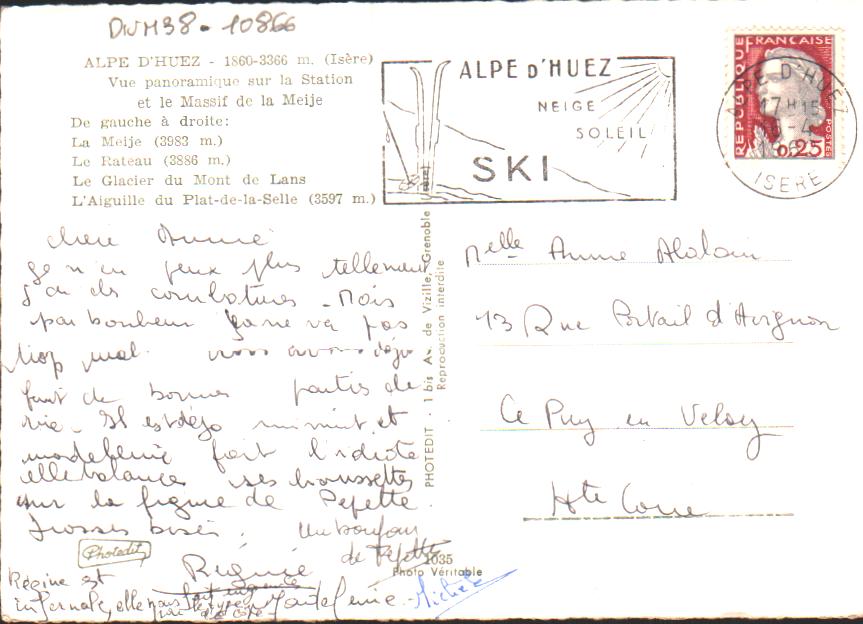 DIVM38 - 10866
ALPE D'HUEZ - 1860-3366 m. (Isère)
Vue panoramique sur la Station
et le Massif de la Meije
De gauche à droite:
La Meije (3983 m.)
Le Rateau (3886 m.)
Le Glacier du Mont de Lans
L'Aiguille du Plat-de-la-Selle (3597 m.)
ALPE D'HUEZ
NEIGE
SOLEIL
SKI
REPUBLIQUE FRANCAISE
POSTES
0,25
ALPE D'HUEZ
17H15
ISERE
chere Annie
je n'en peux plus tellement
j'ai des courbatures - Mais
par bonheur ça ne va pas
trop mal. nous avons déjà
fait de bonnes parties de
rire - Il est déjà minuit et
madeleine fait l'idiote
elle balance ses chaussettes
sur la figure de Pepette.
Grosses bises. Un bonjour
de Pepette
Régine
Régine est
infernale, elle nous
Michèle
PHOTEDIT - 1 bis Av. de Vizille, Grenoble (Isère)
Reproduction interdite
Photedit
1035
Photo Véritable
Melle Anne
13 Rue Portail d'Avignon
Le Puy en Velay
Hte Loire